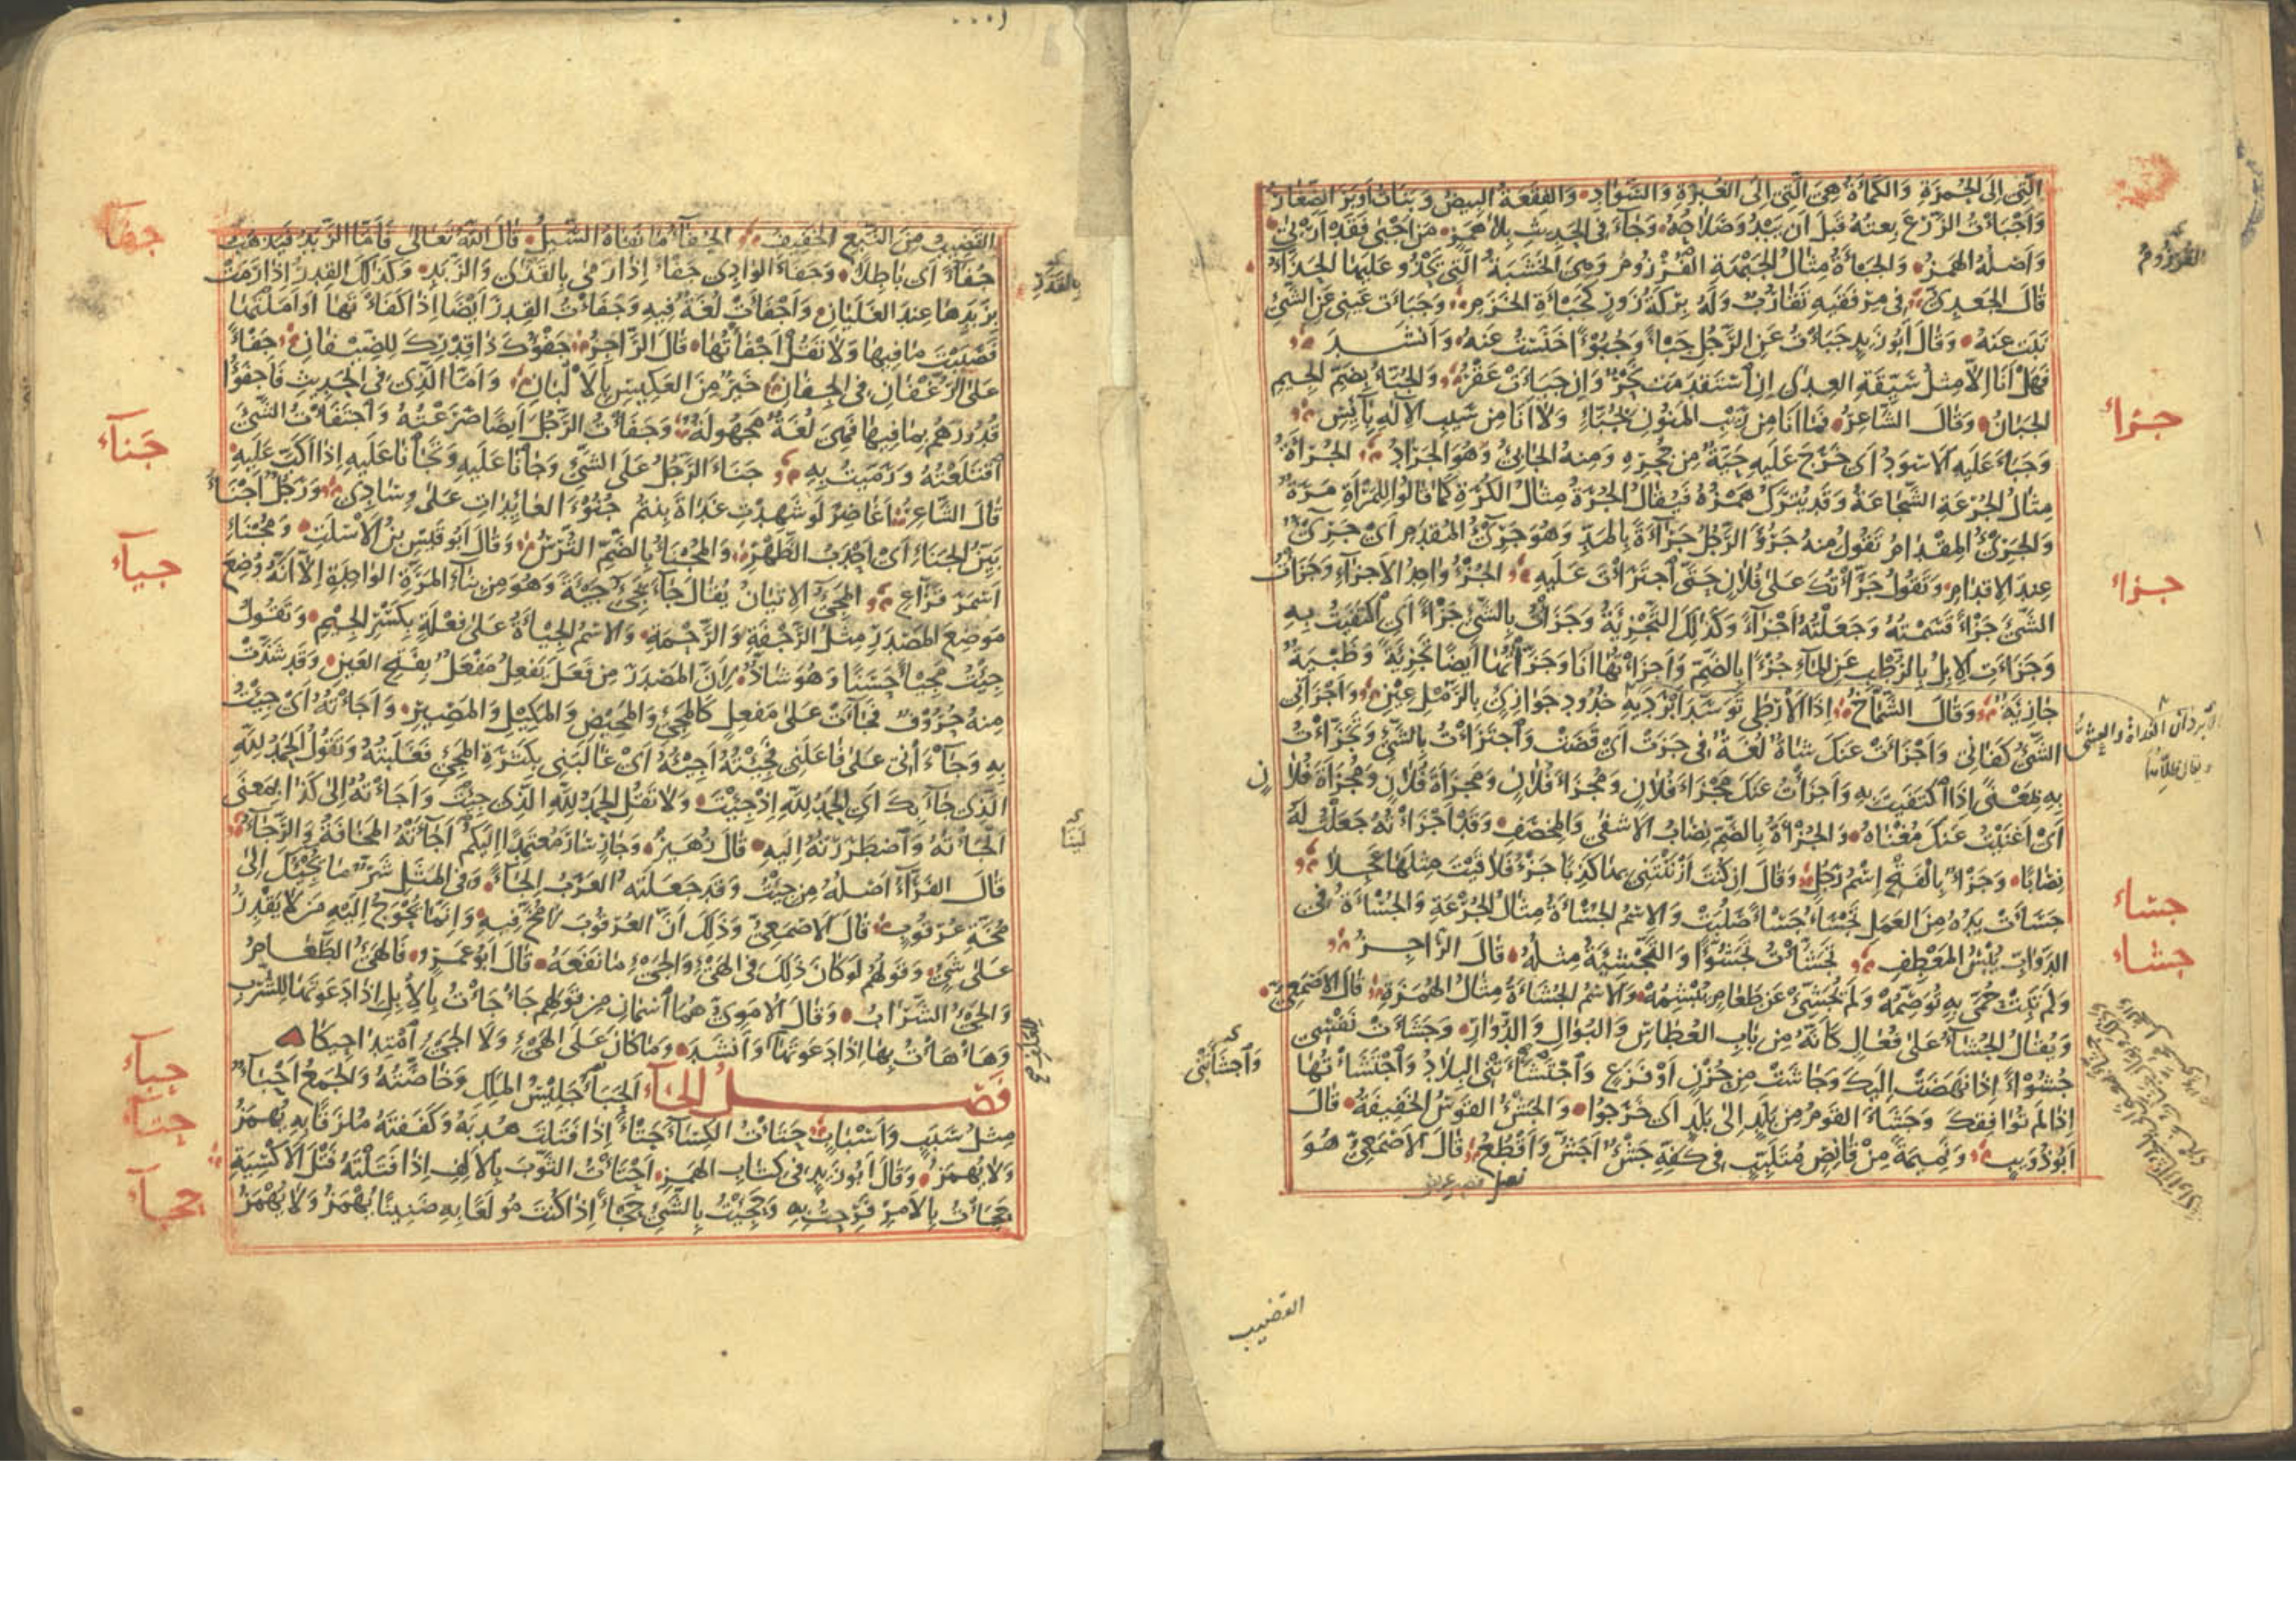 الَّتِي إِلَى الحُمرَةِ وَالكَمْأَةُ هِيَ الَّتِي إِلَى الغُبرَةِ وَالسَّوَادِ وَالفِقَعَةُ البِيضُ وَبَنَاتُ أَوبَرَ الصِّغَارُ
وَأَجْبَأْتُ الزَّرْعَ بِعتُهُ قَبلَ أَن يَبْدُوَ صَلَاحُهُ وَجَاءَ فِي الحَدِيثِ بِلَا هَمزٍ مَن أَجْبَى فَقَد أَرْبَى
وَأَصْلُهُ الهَمزُ وَالجَبْأَةُ مِثَالُ الجَبْهَةِ القُرْزُومُ وَهِيَ الخَشَبَةُ الَّتِي يَحْذُو عَلَيهَا الحَذَّاءُ
قَالَ الجَعدِيُّ فِي مِرْفَقَيهِ تَقَارُبٌ وَلَهُ بِرْكَةُ زَوْرٍ كَجَبْأَةِ الخَزَمِ وَجَبَأَت عَينِي عَنِ الشَّيْءِ
نَبَت عَنهُ وَقَالَ أَبُو زَيدٍ جَبَأْتُ عَنِ الرَّجُلِ جَبْأً وَجُبُوءًا خَنَسْتُ عَنهُ وَأَنشَدَ
فَهَلْ أَنَا إِلَّا مِثلُ سَيِّقَةِ العِدَى إِنِ اسْتَقْدَمَت نَحْرٌ وَإِن جَبَأَت عَقْرُ وَالجُبَّأُ بِضَمِّ الجِيمِ
الجَبَانُ وَقَالَ الشَّاعِرُ فَمَا أَنَا مِن رَيْبِ المَنُونِ بِجُبَّاءٍ وَلَا أَنَا مِن سَيْبِ الإِلَهِ بِآيِسِ
وَجَبَأَ عَلَيهِ الأَسْوَدُ أَي خَرَجَ عَلَيهِ حَيَّةٌ مِن جُحرِهِ وَمِنهُ الجَابِئُ وَهُوَ الجَرَادُ الجُرْأَةُ
مِثَالُ الجُرْعَةِ الشَّجَاعَةُ وَقَد يُتْرَكُ هَمْزُهُ فَيُقَالُ الجُرَةُ مِثَالُ الكُرَةِ كَمَا قَالُوا لِلمَرْأَةِ مَرَةٌ
وَالجَرِيءُ المِقْدَامُ تَقُولُ مِنهُ جَرُؤَ الرَّجُلُ جَرَاءَةً بِالمَدِّ وَهُوَ جَرِيءُ المُقدَمِ أَي جَرِيءٌ
عِندَ الإِقدَامِ وَتَقُولُ جَرَّأْتُكَ عَلَى فُلَانٍ حَتَّى اجْتَرَأْتَ عَلَيهِ الجُزْءُ وَاحِدُ الأَجزَاءِ وَجَزَأْتُ
الشَّيْءَ جَزْءًا قَسَمْتُهُ وَجَعَلْتُهُ أَجْزَاءً وَكَذَلِكَ التَّجْزِئَةُ وَجَزَأْتُ بِالشَّيْءِ جَزْءًا أَي اكْتَفَيتُ بِهِ
وَجَزَأَتِ الإِبِلُ بِالرُّطْبِ عَنِ المَاءِ جُزْءًا بِالضَّمِّ وَأَجْزَأْتُهَا أَنَا وَجَزَّأْتُهَا أَيضًا تَجْزِئَةً وَظَبْيَةٌ
جَازِئَةٌ وَقَالَ الشَّمَّاخُ إِذَا الأَرْطَى تَوَسَّدَ أَبْرَدَيهِ خُدُودُ جَوَازِئٍ بِالرَّمْلِ عِينِ وَأَجْزَأَنِي
الشَّيْءُ كَفَانِي وَأَجْزَأَتْ عَنكَ شَاةٌ لُغَةٌ فِي جَزَتْ أَي قَضَت وَاجْتَزَأْتُ بِالشَّيْءِ وَتَجَزَّأْتُ
بِهِ بِمَعْنًى إِذَا اكْتَفَيتَ بِهِ وَأَجْزَأْتُ عَنكَ مَجْزَأَ فُلَانٍ وَمُجْزَأَ فُلَانٍ وَمَجْزَأَةَ فُلَانٍ وَمُجْزَأَةَ فُلَانٍ
أَي أَغْنَيتُ عَنكَ مَغْنَاهُ وَالجُزْأَةُ بِالضَّمِّ نِصَابُ الإِشْفَى وَالمِخْصَفِ وَقَد أَجْزَأْتُهُ جَعَلْتُ لَهُ
نِصَابًا وَجَزْءٌ بِالفَتْحِ اسْمُ رَجُلٍ وَقَالَ إِن كُنتَ أَزْنَنْتَنِي بِهَا كَذِبًا جَزْءُ فَلَاقَيتَ مِثْلَهَا عَجِلَا
جَسَأَت يَدُهُ مِنَ العَمَلِ تَجْسَأُ جَسْأً صَلُبَتْ وَالِاسْمُ الجُسْأَةُ مِثَالُ الجُرْعَةِ وَالجُسْأَةُ فِي
الدَّوَابِّ يُبْسُ المَعْطِفِ تَجَشَّأْتُ تَجَشُّؤًا وَالتَّجْشِئَةُ مِثْلُهُ قَالَ الرَّاجِزُ
وَلَم تَبِتْ حُمَّى بِهِ تُوَصِّمُهْ وَلَم تُجَشِّئْ عَن طَعَامٍ تَبْشَمُهْ وَالِاسْمُ الجُشَأَةُ مِثَالُ الهُمَزَةِ قَالَ الأَصْمَعِيُّ
وَيُقَالُ الجُشَاءُ عَلَى فُعَالٍ كَأَنَّهُ مِن بَابِ العُطَاسِ وَالبُوَالِ وَالدُّوَارِ وَجَشَأَتْ نَفْسِي
جُشُوءًا إِذَا نَهَضَتْ إِلَيكَ وَجَاشَت مِن حُزْنٍ أَوْ فَزَعٍ وَاجْتَشَأَتْنِي البِلَادُ وَاجْتَشَأْتُهَا
إِذَا لَم تُوَافِقكَ وَجَشَأَ القَومُ مِن بَلَدٍ إِلَى بَلَدٍ أَي خَرَجُوا وَالجَشْءُ القَوْسُ الخَفِيفَةُ قَالَ
أَبُو ذُؤَيبٍ وَنَمِيمَةً مِنْ قَانِصٍ مُتَلَبِّبٍ فِي كَفِّهِ جَشْءٌ أَجَشُّ وَأَقْطُعُ قَالَ الأَصْمَعِيُّ هُوَ
القُرزُومُ
جزاء
جزاء
جساء
جشاء
وَاجْشَأَتْنِي
القضيب
القَضِيبُ مِنَ النَّبْعِ الخَفِيفُ الجُفَاءُ مَا نَفَاهُ السَّيلُ قَالَ اللَّهُ تَعَالَى فَأَمَّا الزَّبَدُ فَيَذهَبُ
جُفَاءً أَي بَاطِلًا وَجَفَأَ الوَادِي جَفْأً إِذَا رَمَى بِالقَذَى وَالزَّبَدِ وَكَذَلِكَ القِدرُ إِذَا رَمَتْ
بِزَبَدِهَا عِندَ الغَلَيَانِ وَأَجْفَأَتْ لُغَةٌ فِيهِ وَجَفَأْتُ القِدرَ أَيضًا إِذَا كَفَأْتَهَا أَو أَمَلْتَهَا
فَصَبَبْتَ مَا فِيهَا وَلَا تَقُلْ أَجْفَأْتُهَا قَالَ الرَّاجِزُ جَفْؤُكَ ذَا قِدْرِكَ لِلضِّيفَانِ جَفْأً
عَلَى الرُّغْفَانِ فِي الجِفَانِ خَيْرٌ مِنَ العَكِيسِ بِالأَلْبَانِ وَأَمَّا الَّذِي فِي الحَدِيثِ فَأَجْفَؤُا
قُدُورَهُم بِمَا فِيهَا فَهِيَ لُغَةٌ مَجْهُولَةٌ وَجَفَأْتُ الرَّجُلَ أَيضًا صَرَعْتُهُ وَاجْتَفَأْتُ الشَّيْءَ
اقْتَلَعْتُهُ وَرَمَيتُ بِهِ جَنَأَ الرَّجُلُ عَلَى الشَّيْءِ وَجَانَأَ عَلَيهِ وَتَجَانَأَ عَلَيهِ إِذَا أَكَبَّ عَلَيهِ
قَالَ الشَّاعِرُ أَغَاضِرَ لَو شَهِدتِ غَدَاةَ بِنتُم جُنُوءَ العَائِدَاتِ عَلَى وِسَادِي وَرَجُلٌ أَجْنَأُ
بَيِّنُ الجَنَأِ أَي أَحْدَبُ الظَّهْرِ وَالمُجْنَأُ بِالضَّمِّ التُّرْسُ وَقَالَ أَبُو قَيسِ بنُ الأَسْلَتِ وَمُجْنَإٍ
أَسْمَرَ قَرَّاعِ المَجِيءُ الإِتيَانُ يُقَالُ جَاءَ يَجِيءُ جَيئَةً وَهُوَ مِن بِنَاءِ المَرَّةِ الوَاحِدَةِ إِلَّا أَنَّهُ وُضِعَ
مَوضِعَ المَصْدَرِ مِثْلُ الرَّجْفَةِ وَالرَّحْمَةِ وَالِاسْمُ الجِيأَةُ عَلَى فِعْلَةٍ بِكَسْرِ الجِيمِ وَتَقُولُ
جِئْتُ مَجِيئًا حَسَنًا وَهُوَ شَاذٌّ لِأَنَّ المَصْدَرَ مِن فَعَلَ يَفعِلُ مَفْعَلٌ بِفَتْحِ العَينِ وَقَد شَذَّتْ
مِنهُ حُرُوفٌ فَجَاءَتْ عَلَى مَفْعِلٍ كَالمَجِيءِ وَالمَحِيضِ وَالمَكِيلِ وَالمَصِيرِ وَأَجَأْتُهُ أَي جِئْتُ
بِهِ وَجَاءَانِي عَلَى فَاعَلَنِي فَجِئْتُهُ أَجِيئُهُ أَي غَالَبَنِي بِكَثْرَةِ المَجِيءِ فَغَلَبْتُهُ وَتَقُولُ الحَمدُ لِلَّهِ
الَّذِي جَاءَ بِكَ أَيِ الحَمدُ لِلَّهِ إِذْ جِئْتَ وَلَا تَقُلِ الحَمدُ لِلَّهِ الَّذِي جِئْتَ وَأَجَأْتُهُ إِلَى كَذَا بِمَعنَى
أَلْجَأْتُهُ وَاضْطَرَرْتُهُ إِلَيهِ قَالَ زُهَيرٌ وَجَارٍ سَارَ مُعتَمِدًا إِلَيكُمْ أَجَاءَتْهُ المَخَافَةُ وَالرَّجَاءُ
قَالَ الفَرَّاءُ أَصْلُهُ مِن جِئْتُ وَقَد جَعَلَتهُ العَرَبُ إِلجَاءً وَفِي المَثَلِ شَرٌّ مَا يُجِيئُكَ إِلَى
مُخَّةِ عُرْقُوبٍ قَالَ الأَصْمَعِيُّ وَذَلِكَ أَنَّ العُرْقُوبَ لَا مُخَّ فِيهِ وَإِنَّمَا يُحْوَجُ إِلَيهِ مَن لَا يَقْدِرُ
عَلَى شَيْءٍ وَقَولُهُمْ لَو كَانَ ذَلِكَ فِي الهِيءِ وَالجِيءِ مَا نَفَعَهُ قَالَ أَبُو عَمرٍو فَالهِيءُ الطَّعَامُ
وَالجِيءُ الشَّرَابُ وَقَالَ الأُمَوِيُّ هُمَا اسْمَانِ مِن قَولِهِم جَأْجَأْتُ بِالإِبِلِ إِذَا دَعَوتَهَا لِلشُّرْبِ
وَهَأْهَأْتُ بِهَا إِذَا دَعَوتَهَا وَأَنْشَدَ وَمَا كَانَ عَلَى الهِيءِ وَلَا الجِيءِ امْتِدَاحِيكَا
فَصْلُ الحَاءِ الحَبَأُ جَلِيسُ المَلِكِ وَخَاصَّتُهُ وَالجَمعُ أَحْبَاءٌ
مِثلُ سَبَبٍ وَأَسْبَابٍ حَتَأْتُ الكِسَاءَ حَتْأً إِذَا فَتَلتَ هُدْبَهُ وَكَفَفتَهُ مُلزَقًا بِهِ يُهمَزُ
وَلَا يُهمَزُ وَقَالَ أَبُو زَيدٍ فِي كِتَابِ الهَمزِ أَحْتَأْتُ الثَّوبَ بِالأَلِفِ إِذَا فَتَلْتَهُ فَتْلَ الأَكْسِيَةِ
حَجَأْتُ بِالأَمرِ فَرِحتُ بِهِ وَحَجِئْتُ بِالشَّيْءِ حَجْأً إِذَا كُنتَ مُولَعًا بِهِ ضَنِينًا يُهْمَزُ وَلَا يُهْمَزُ
جفآء
جَنآء
جيآء
حبآء
حتآء
حجبآء